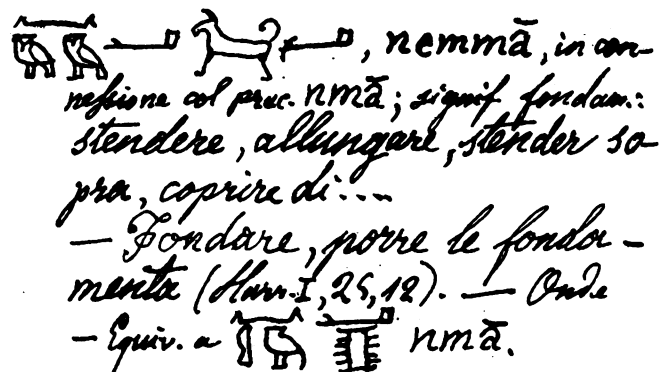 , nemmā, in con-
nessione col prec. nmā; signif. fondam.:
stendere, allungare, stender so
pra, coprire di....
— Fondare, porre le fonda-
menta (Harr. I, 25, 12). — Onde
— Equiv. a nmā.